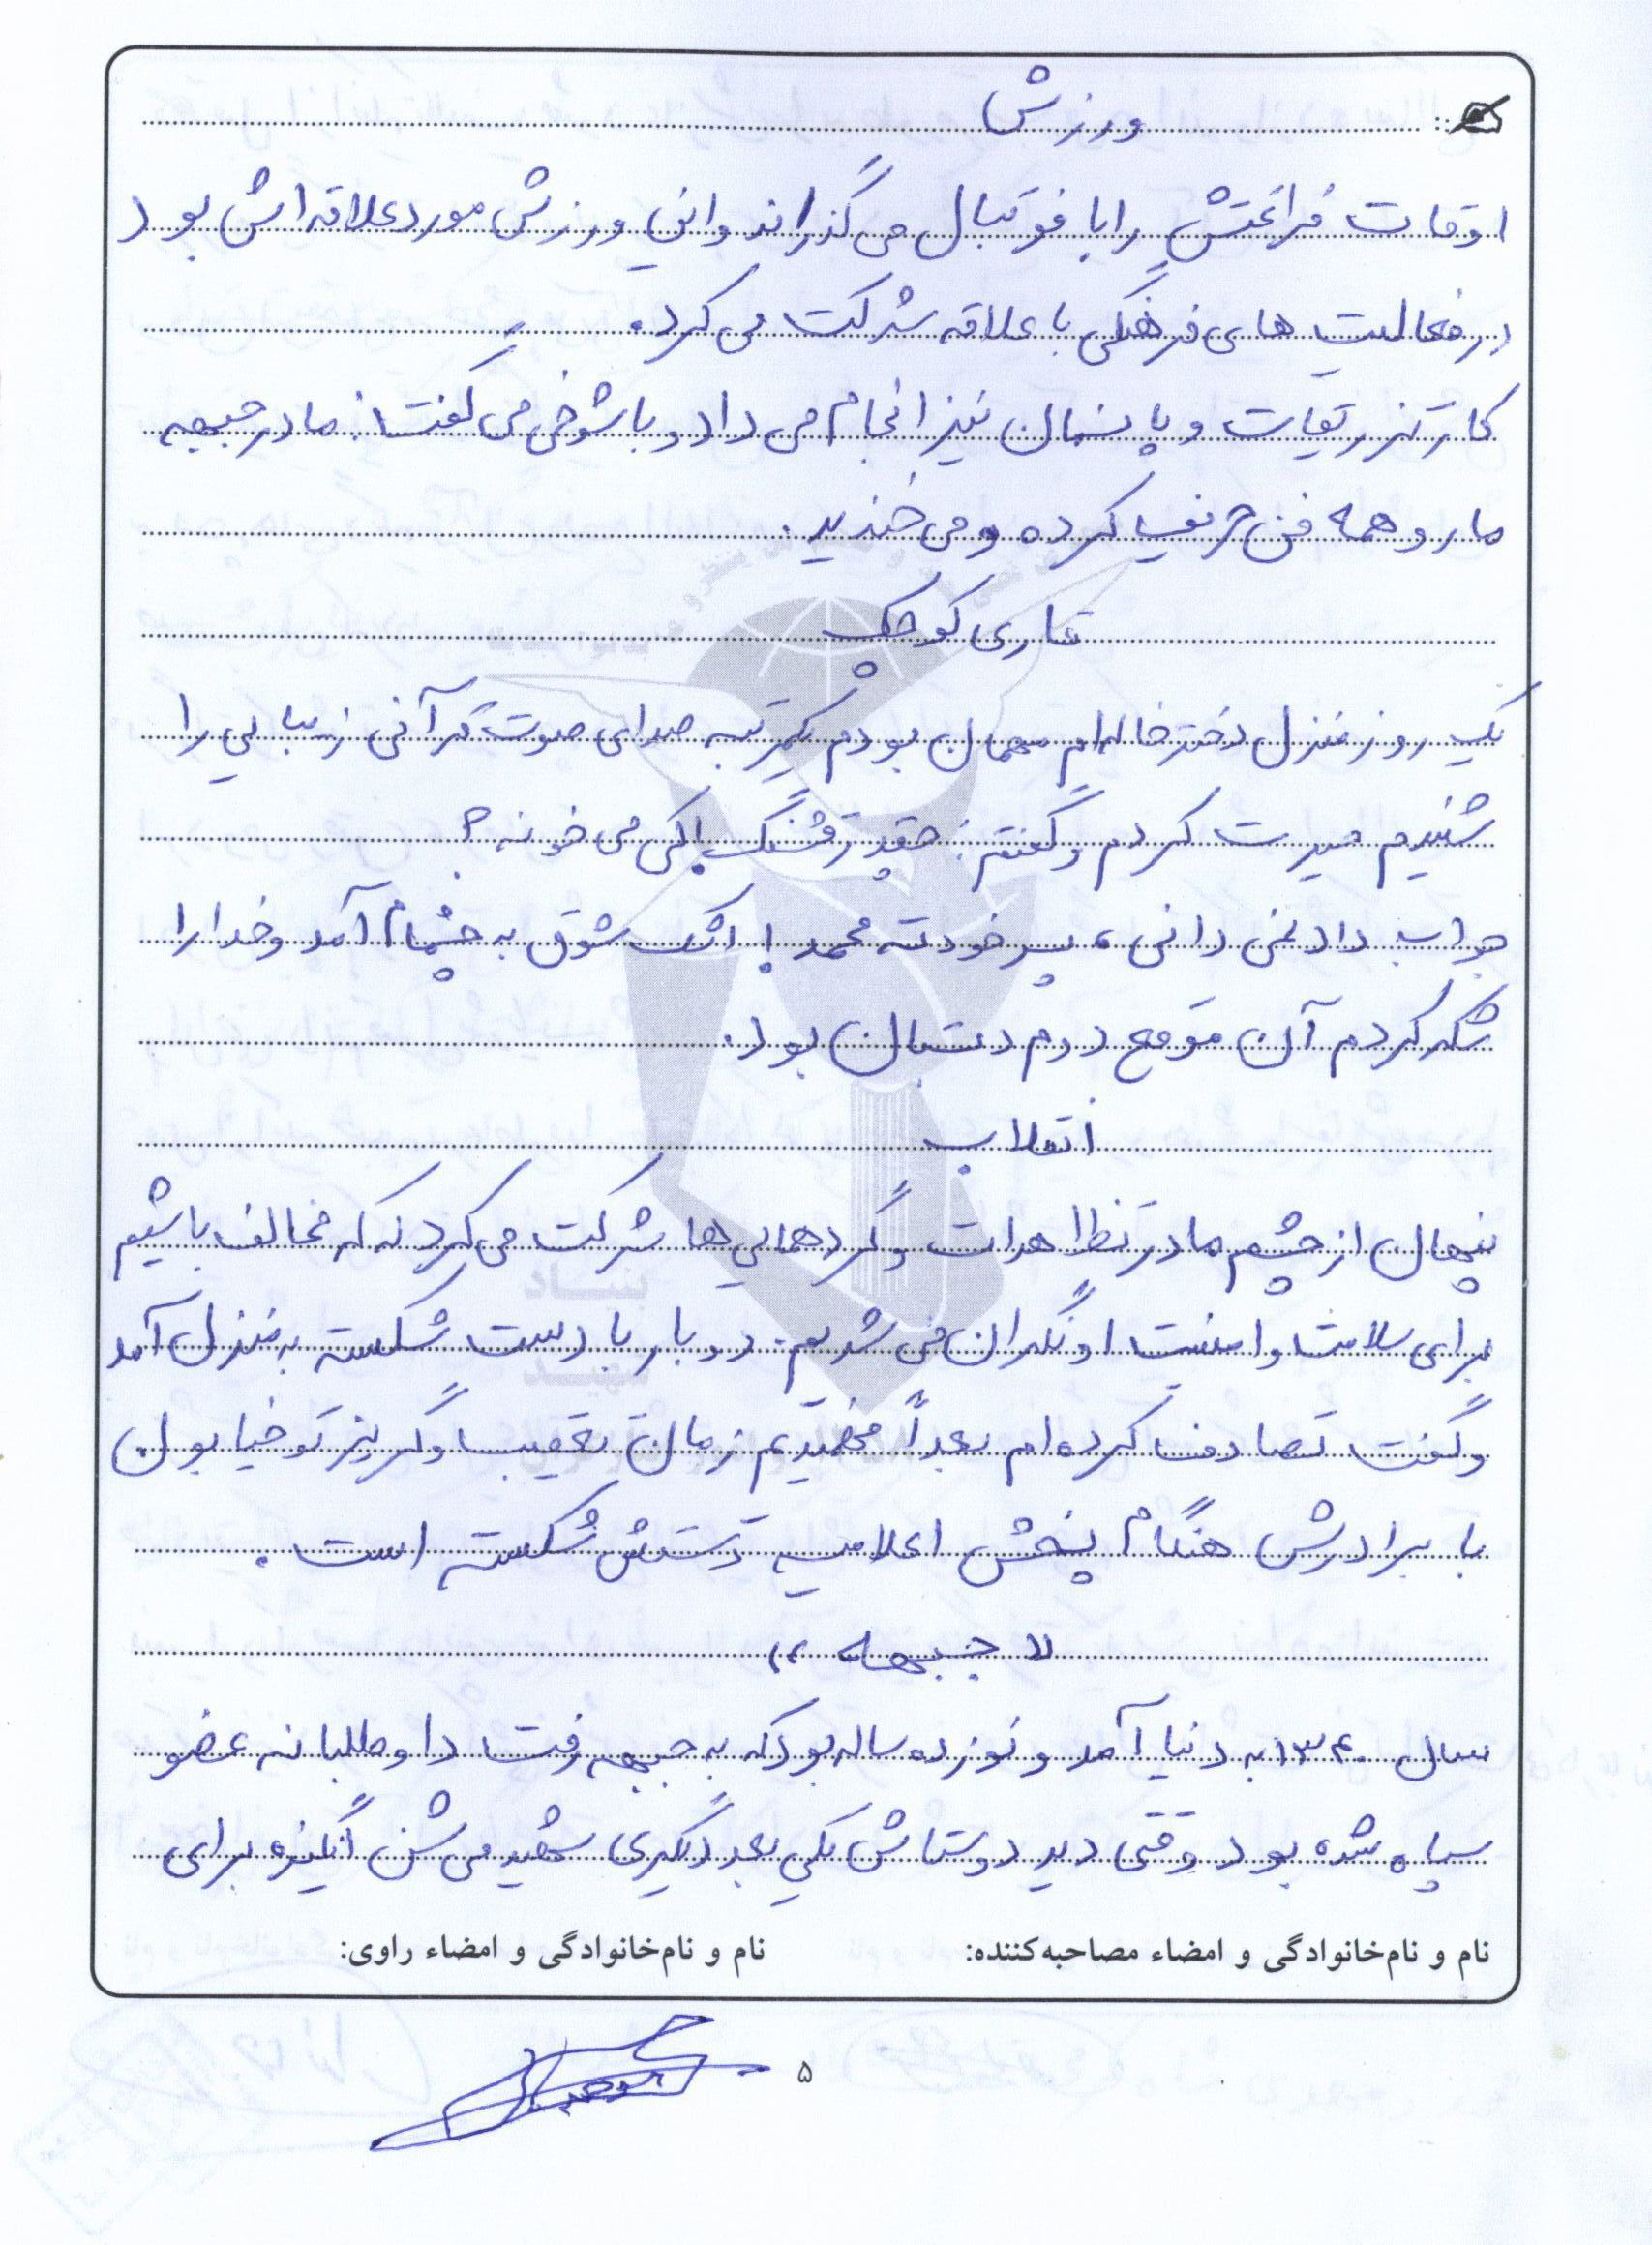 ورزش
اوقات فراغتش را با فوتبال می گذراند و این ورزش مورد علاقه اش بود
در فعالیت های فرهنگی با علاقه شرکت می کرد.
کار تزریقات و پانسمان نیز انجام می داد و با شوخی می گفت: ما در جبهه
ما رو همه فن حریف کرده و می خندید.
قاری کوچک
یک روز منزل دختر خاله ام مهمان بودم یکمرتبه صدای صوت قرآنی زیبایی را
شنیدم حیرت کردم و گفتم: چقدر قشنگ! کی می خونه؟
جواب داد نمی دانی، پسر خودته محمد! اشک شوق به چشمام آمد و خدا را
شکر کردم آن موقع دوم دبستان بود.
انقلاب
پنهان از چشم ما در تظاهرات و گردهمایی ها شرکت می کرد نه که مخالف باشیم
برای سلامت و امنیت او نگران می شدیم. دوبار با دست شکسته به منزل آمد
و گفت تصادف کرده ام بعداً فهمیدیم زمان تعقیب و گریز تو خیابون
با برادرش هنگام پخش اعلامیه دستش شکسته است.
« جبهه »
سال ۱۳۴۰ به دنیا آمد و نوزده ساله بود که به جبهه رفت داوطلبانه عضو
سپاه شده بود وقتی دید دوستاش یکی بعد دیگری شهید می شن انگیزه برای
نام و نام‌خانوادگی و امضاء مصاحبه‌کننده:
نام و نام‌خانوادگی و امضاء راوی:
۵
بنیاد
شهید